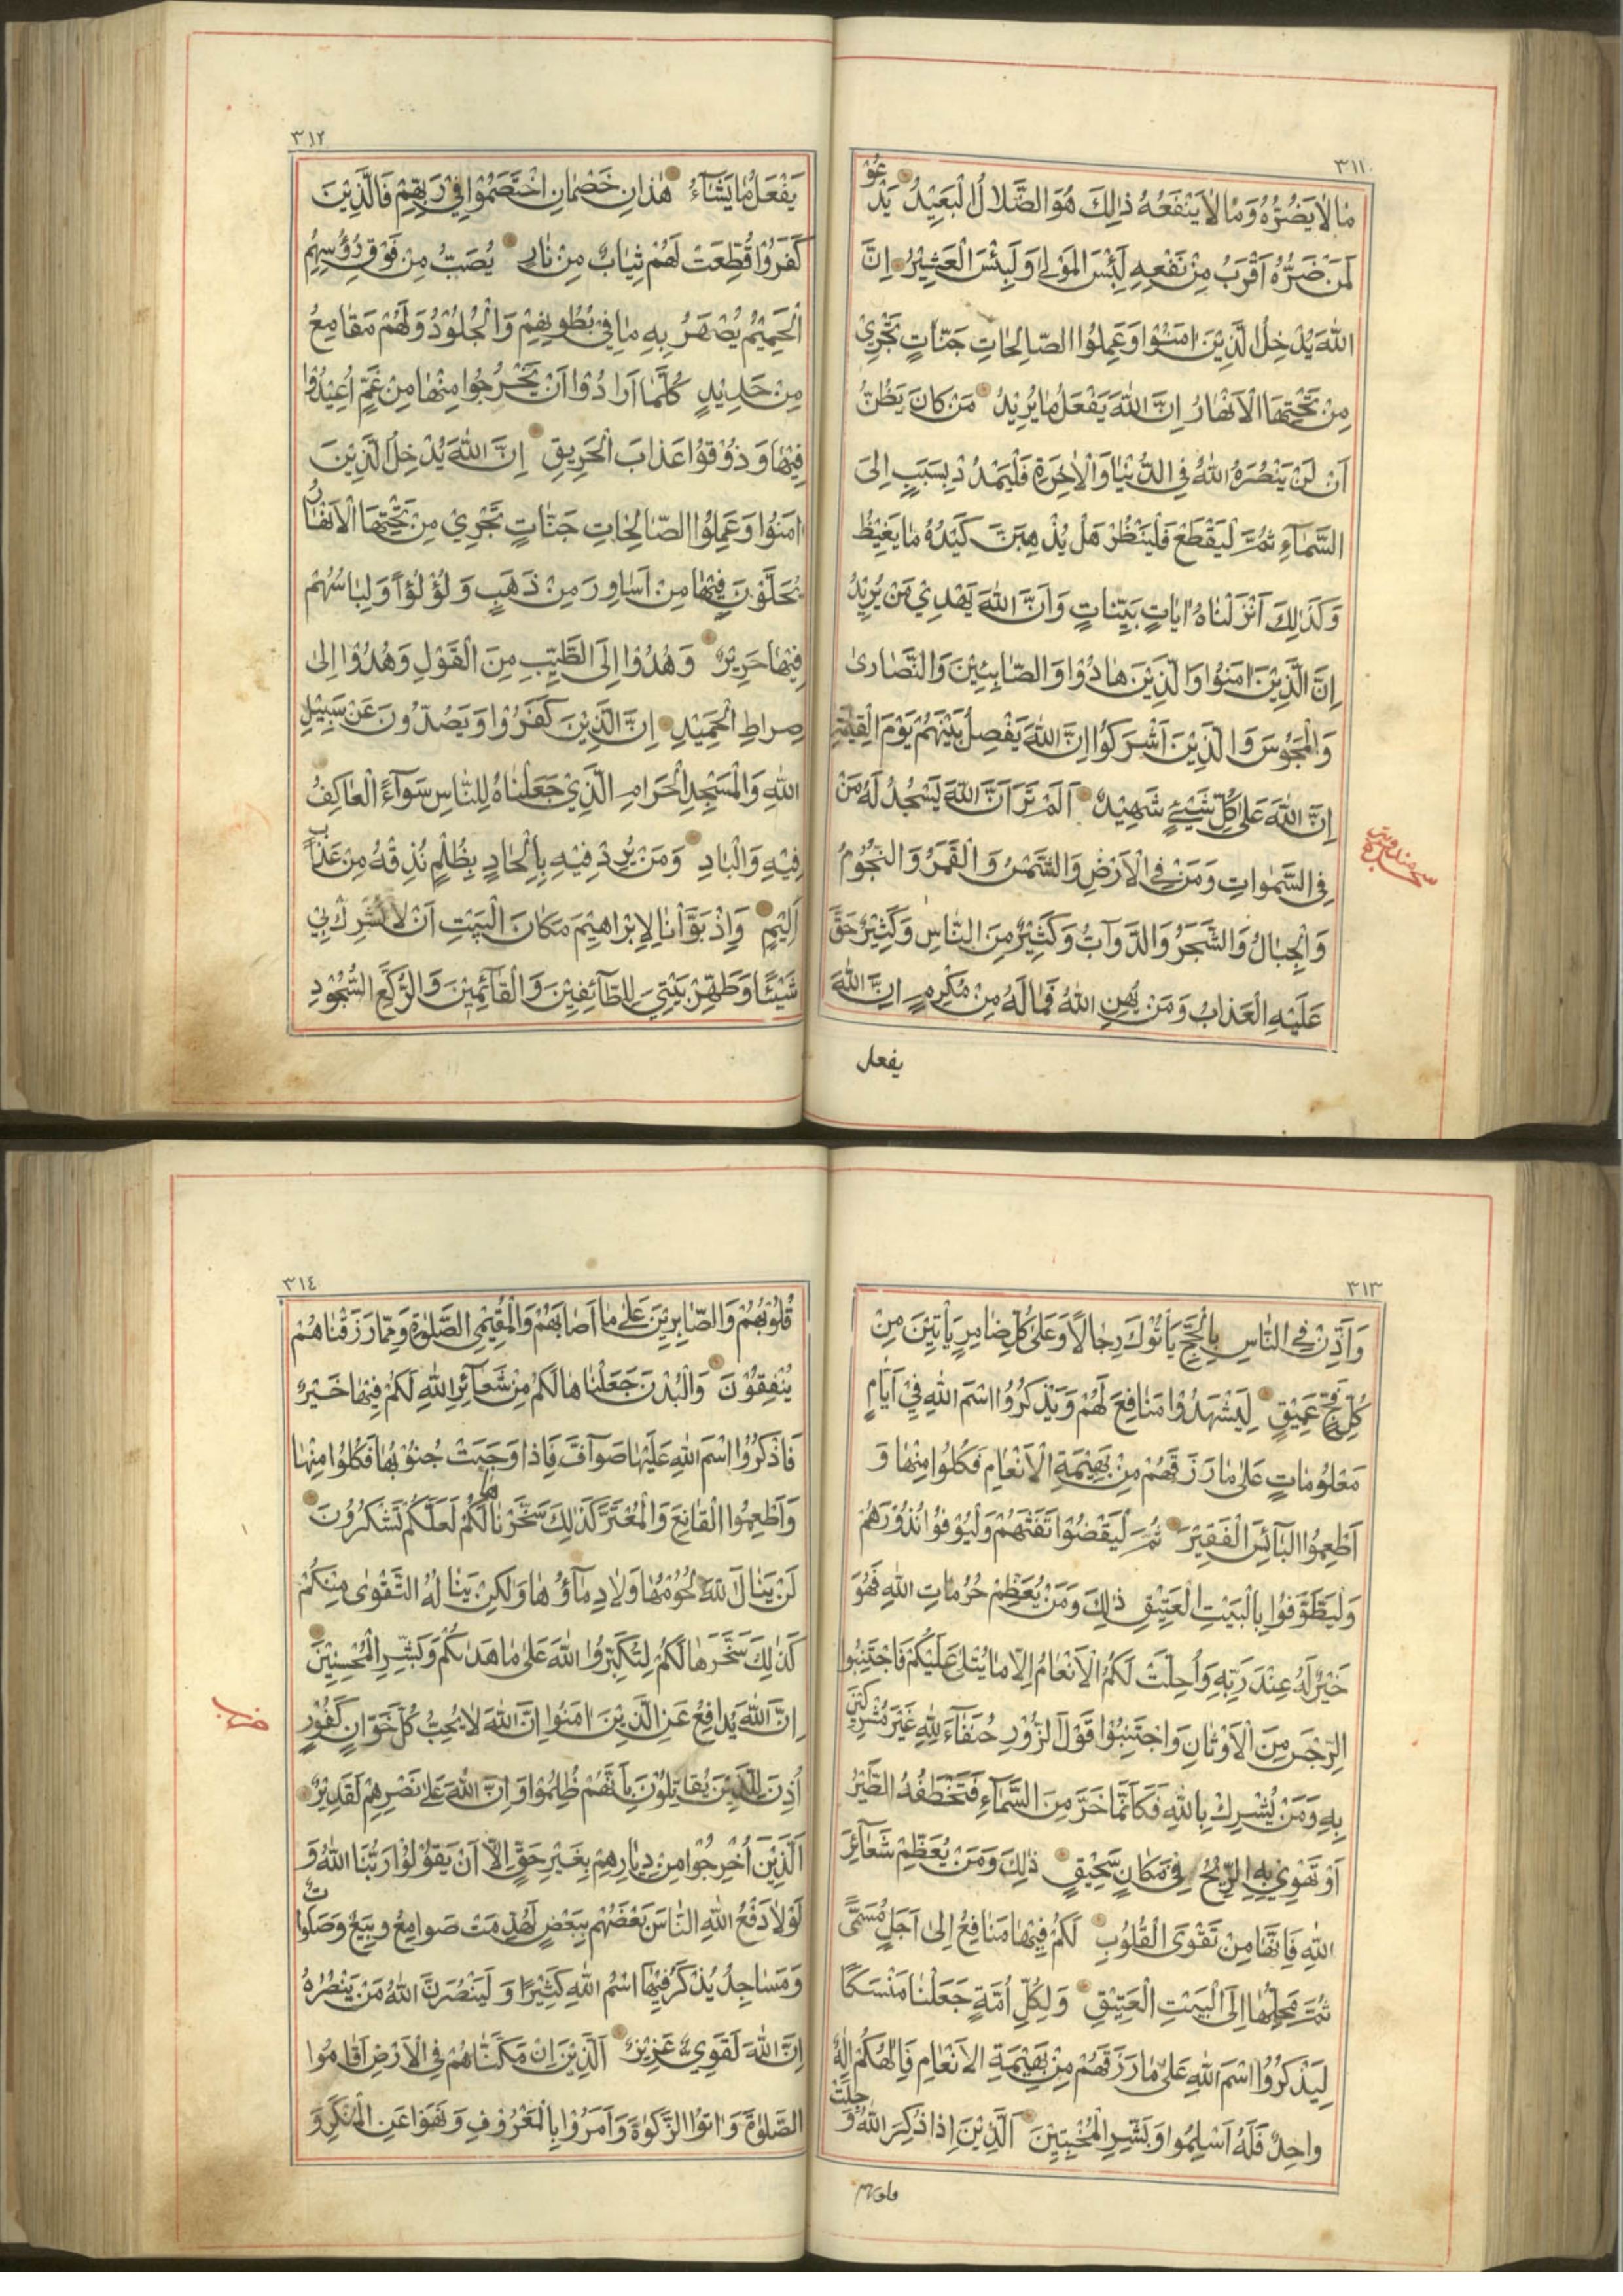 ٣١١
مَا لَا يَضُرُّهُ وَمَا لَا يَنْفَعُهُ ذٰلِكَ هُوَ الضَّلَالُ الْبَعِيْدُ يَدْعُوْ
لَمَنْ ضَرُّهُ اَقْرَبُ مِنْ نَفْعِهِ لَبِئْسَ الْمَوْلٰى وَلَبِئْسَ الْعَشِيْرُ اِنَّ
اللّٰهَ يُدْخِلُ الَّذِيْنَ اٰمَنُوْا وَعَمِلُوا الصَّالِحَاتِ جَنَّاتٍ تَجْرِيْ
مِنْ تَحْتِهَا الْاَنْهَارُ اِنَّ اللّٰهَ يَفْعَلُ مَا يُرِيْدُ مَنْ كَانَ يَظُنُّ
اَنْ لَنْ يَنْصُرَهُ اللّٰهُ فِي الدُّنْيَا وَالْاٰخِرَةِ فَلْيَمْدُدْ بِسَبَبٍ اِلَى
السَّمَآءِ ثُمَّ لْيَقْطَعْ فَلْيَنْظُرْ هَلْ يُذْهِبَنَّ كَيْدُهُ مَا يَغِيْظُ
وَكَذٰلِكَ اَنْزَلْنَاهُ اٰيَاتٍ بَيِّنَاتٍ وَاَنَّ اللّٰهَ يَهْدِيْ مَنْ يُرِيْدُ
اِنَّ الَّذِيْنَ اٰمَنُوْا وَالَّذِيْنَ هَادُوْا وَالصَّابِئِيْنَ وَالنَّصَارٰى
وَالْمَجُوْسَ وَالَّذِيْنَ اَشْرَكُوْا اِنَّ اللّٰهَ يَفْصِلُ بَيْنَهُمْ يَوْمَ الْقِيٰمَةِ
اِنَّ اللّٰهَ عَلٰى كُلِّ شَيْئٍ شَهِيْدٌ اَلَمْ تَرَ اَنَّ اللّٰهَ يَسْجُدُ لَهُ مَنْ
فِي السَّمٰوَاتِ وَمَنْ فِي الْاَرْضِ وَالشَّمْسُ وَالْقَمَرُ وَالنُّجُوْمُ
وَالْجِبَالُ وَالشَّجَرُ وَالدَّوَآبُّ وَكَثِيْرٌ مِنَ النَّاسِ وَكَثِيْرٌ حَقَّ
عَلَيْهِ الْعَذَابُ وَمَنْ يُهِنِ اللّٰهُ فَمَا لَهُ مِنْ مُكْرِمٍ اِنَّ اللّٰهَ
يفعل
٣١٢
يَفْعَلُ مَا يَشَآءُ هٰذَانِ خَصْمَانِ اخْتَصَمُوْا فِيْ رَبِّهِمْ فَالَّذِيْنَ
كَفَرُوْا قُطِّعَتْ لَهُمْ ثِيَابٌ مِنْ نَارٍ يُصَبُّ مِنْ فَوْقِ رُؤُسِهِمُ
الْحَمِيْمُ يُصْهَرُ بِهِ مَا فِيْ بُطُوْنِهِمْ وَالْجُلُوْدُ وَلَهُمْ مَقَامِعُ
مِنْ حَدِيْدٍ كُلَّمَا اَرَادُوْا اَنْ يَخْرُجُوْا مِنْهَا مِنْ غَمٍّ اُعِيْدُوْا
فِيْهَا وَذُوْقُوْا عَذَابَ الْحَرِيقِ اِنَّ اللّٰهَ يُدْخِلُ الَّذِيْنَ
اٰمَنُوْا وَعَمِلُوا الصَّالِحَاتِ جَنَّاتٍ تَجْرِيْ مِنْ تَحْتِهَا الْاَنْهَارُ
يُحَلَّوْنَ فِيْهَا مِنْ اَسَاوِرَ مِنْ ذَهَبٍ وَلُؤْلُؤًا وَلِبَاسُهُمْ
فِيْهَا حَرِيْرٌ وَهُدُوْا اِلَى الطَّيِّبِ مِنَ الْقَوْلِ وَهُدُوْا اِلٰى
صِرَاطِ الْحَمِيْدِ اِنَّ الَّذِيْنَ كَفَرُوْا وَيَصُدُّونَ عَنْ سَبِيْلِ
اللّٰهِ وَالْمَسْجِدِ الْحَرَامِ الَّذِيْ جَعَلْنَاهُ لِلنَّاسِ سَوَآءً الْعَاكِفُ
فِيْهِ وَالْبَادِ وَمَنْ يُرِدْ فِيْهِ بِاِلْحَادٍ بِظُلْمٍ نُذِقْهُ مِنْ عَذَابٍ
اَلِيْمٍ وَاِذْ بَوَّاْنَا لِاِبْرَاهِيْمَ مَكَانَ الْبَيْتِ اَنْ لَا تُشْرِكْ بِيْ
شَيْئًا وَطَهِّرْ بَيْتِيَ لِلطَّآئِفِيْنَ وَالْقَآئِمِيْنَ وَالرُّكَّعِ السُّجُوْدِ
٣١٣
وَاَذِّنْ فِي النَّاسِ بِالْحَجِّ يَاْتُوْكَ رِجَالًا وَعَلٰى كُلِّ ضَامِرٍ يَاْتِيْنَ مِنْ
كُلِّ فَجٍّ عَمِيْقٍ لِيَشْهَدُوْا مَنَافِعَ لَهُمْ وَيَذْكُرُوا اسْمَ اللّٰهِ فِيْ اَيَّامٍ
مَعْلُوْمَاتٍ عَلٰى مَا رَزَقَهُمْ مِنْ بَهِيْمَةِ الْاَنْعَامِ فَكُلُوْا مِنْهَا وَ
اَطْعِمُوا الْبَآئِسَ الْفَقِيْرَ ثُمَّ لْيَقْضُوْا تَفَثَهُمْ وَلْيُوْفُوْا نُذُوْرَهُمْ
وَلْيَطَّوَّفُوْا بِالْبَيْتِ الْعَتِيْقِ ذٰلِكَ وَمَنْ يُعَظِّمْ حُرُمَاتِ اللّٰهِ فَهُوَ
خَيْرٌ لَهُ عِنْدَ رَبِّهِ وَاُحِلَّتْ لَكُمُ الْاَنْعَامُ اِلَّا مَا يُتْلٰى عَلَيْكُمْ فَاجْتَنِبُوا
الرِّجْسَ مِنَ الْاَوْثَانِ وَاجْتَنِبُوْا قَوْلَ الزُّوْرِ حُنَفَآءَ لِلّٰهِ غَيْرَ مُشْرِكِيْنَ
بِهِ وَمَنْ يُشْرِكْ بِاللّٰهِ فَكَاَنَّمَا خَرَّ مِنَ السَّمَآءِ فَتَخْطَفُهُ الطَّيْرُ
اَوْ تَهْوِيْ بِهِ الرِّيْحُ فِيْ مَكَانٍ سَحِيْقٍ ذٰلِكَ وَمَنْ يُعَظِّمْ شَعَآئِرَ
اللّٰهِ فَاِنَّهَا مِنْ تَقْوَى الْقُلُوْبِ لَكُمْ فِيْهَا مَنَافِعُ اِلٰى اَجَلٍ مُسَمًّى
ثُمَّ مَحِلُّهَا اِلَى الْبَيْتِ الْعَتِيْقِ وَلِكُلِّ اُمَّةٍ جَعَلْنَا مَنْسَكًا
لِيَذْكُرُوا اسْمَ اللّٰهِ عَلٰى مَا رَزَقَهُمْ مِنْ بَهِيْمَةِ الْاَنْعَامِ فَاِلٰهُكُمْ اِلٰهٌ
وَاحِدٌ فَلَهُ اَسْلِمُوا وَبَشِّرِ الْمُخْبِتِيْنَ اَلَّذِيْنَ اِذَا ذُكِرَ اللّٰهُ وَجِلَتْ
قلوبهم
٣١٤
قُلُوْبُهُمْ وَالصَّابِرِيْنَ عَلٰى مَا اَصَابَهُمْ وَالْمُقِيْمِي الصَّلٰوةِ وَمِمَّا رَزَقْنَاهُمْ
يُنْفِقُوْنَ وَالْبُدْنَ جَعَلْنَاهَا لَكُمْ مِنْ شَعَآئِرِ اللّٰهِ لَكُمْ فِيْهَا خَيْرٌ
فَاذْكُرُوا اسْمَ اللّٰهِ عَلَيْهَا صَوَآفَّ فَاِذَا وَجَبَتْ جُنُوْبُهَا فَكُلُوْا مِنْهَا
وَاَطْعِمُوا الْقَانِعَ وَالْمُعْتَرَّ كَذٰلِكَ سَخَّرْنَاهَا لَكُمْ لَعَلَّكُمْ تَشْكُرُوْنَ
لَنْ يَنَالَ اللّٰهَ لُحُوْمُهَا وَلَا دِمَآؤُهَا وَلٰكِنْ يَنَالُهُ التَّقْوٰى مِنْكُمْ
كَذٰلِكَ سَخَّرَهَا لَكُمْ لِتُكَبِّرُوا اللّٰهَ عَلٰى مَا هَدٰىكُمْ وَبَشِّرِ الْمُحْسِنِيْنَ
اِنَّ اللّٰهَ يُدَافِعُ عَنِ الَّذِيْنَ اٰمَنُوْا اِنَّ اللّٰهَ لَا يُحِبُّ كُلَّ خَوَّانٍ كَفُوْرٍ
اُذِنَ لِلَّذِيْنَ يُقَاتَلُوْنَ بِاَنَّهُمْ ظُلِمُوْا وَاِنَّ اللّٰهَ عَلٰى نَصْرِهِمْ لَقَدِيْرٌ
اَلَّذِيْنَ اُخْرِجُوْا مِنْ دِيَارِهِمْ بِغَيْرِ حَقٍّ اِلَّا اَنْ يَقُوْلُوْا رَبُّنَا اللّٰهُ وَ
لَوْلَا دَفْعُ اللّٰهِ النَّاسَ بَعْضَهُمْ بِبَعْضٍ لَهُدِّمَتْ صَوَامِعُ وَبِيَعٌ وَصَلَوَاتٌ
وَمَسَاجِدُ يُذْكَرُ فِيْهَا اسْمُ اللّٰهِ كَثِيْرًا وَلَيَنْصُرَنَّ اللّٰهُ مَنْ يَنْصُرُهُ
اِنَّ اللّٰهَ لَقَوِيٌّ عَزِيْزٌ اَلَّذِيْنَ اِنْ مَكَّنَّاهُمْ فِي الْاَرْضِ اَقَامُوا
الصَّلٰوةَ وَاٰتَوُا الزَّكٰوةَ وَاَمَرُوْا بِالْمَعْرُوْفِ وَنَهَوْا عَنِ الْمُنْكَرِ وَ